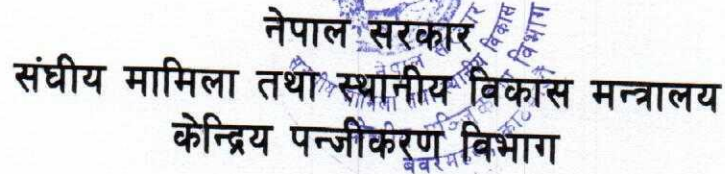 नेपाल सरकार
संघीय मामिला तथा स्थानीय विकास मन्त्रालय
केन्द्रिय पन्जीकरण विभाग